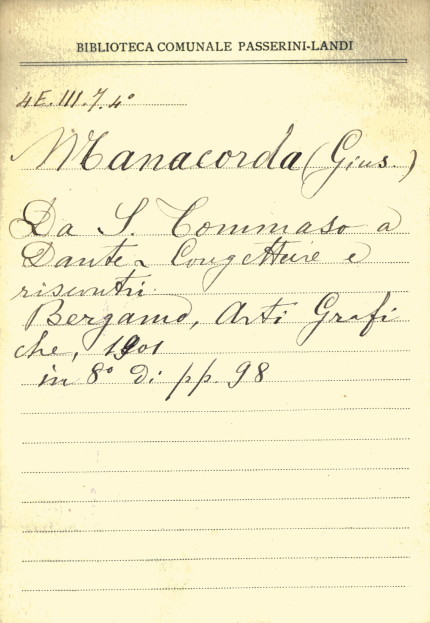 BIBLIOTECA COMUNALE PASSERINI-LANDI
4E.III.7.4°
Manacorda (Gius.)
Da S. Tommaso a
Dante. Congetture e
riscontri.
Bergamo, Arti Grafi
che, 1901
in 8° di pp. 98